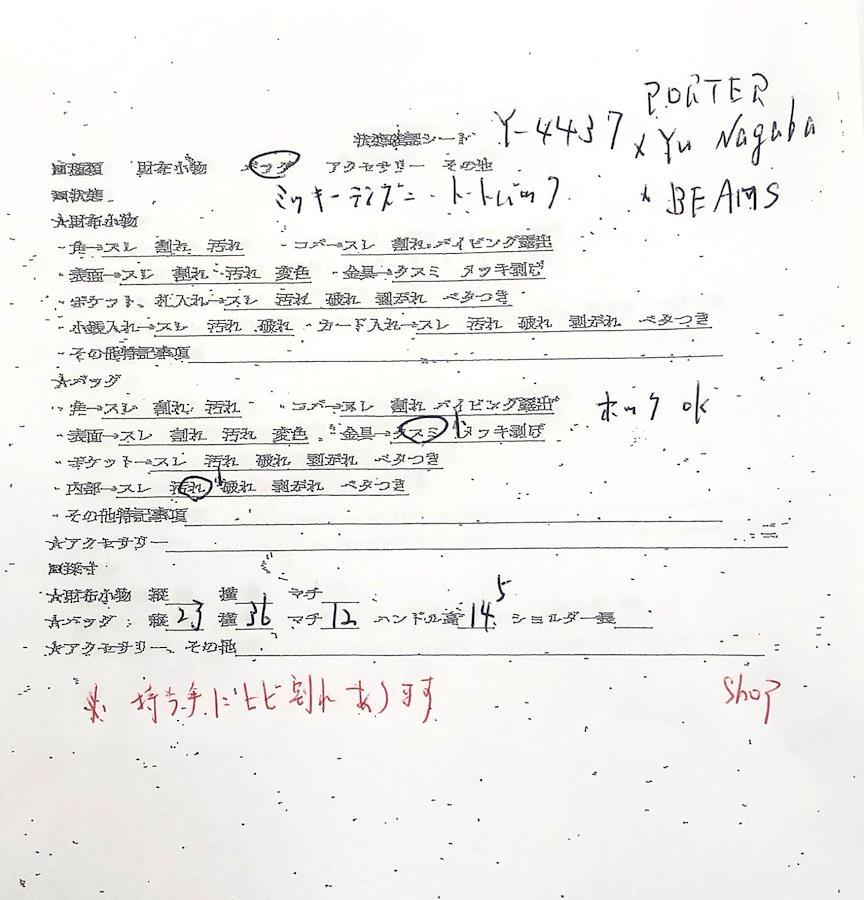 PORTER
状態確認シート Y-4437 × Yu Nagaba
■種類 財布小物 バッグ アクセサリー その他
■状態 ミッキーデンズニートートバック × BEAMS
★財布小物
・角→スレ 割れ 汚れ ・コバ→スレ 割れ パイピング露出
・表面→スレ 割れ 汚れ 変色 ・金具→クスミ メッキ剥げ
・ポケット、札入れ→スレ 汚れ 破れ 剥がれ ベタつき
・小銭入れ→スレ 汚れ 破れ ・カード入れ→スレ 汚れ 破れ 剥がれ ベタつき
・その他特記事項
★バッグ
・角→スレ 割れ 汚れ ・コバ→スレ 割れ パイピング露出 ホック ok
・表面→スレ 割れ 汚れ 変色 ・金具→クスミ 小 メッキ剥げ
・ポケット→スレ 汚れ 破れ 剥がれ ベタつき
・内部→スレ 汚れ 小 破れ 剥がれ ベタつき
・その他特記事項
★アクセサリー
■採寸
★財布小物 縦 横 マチ
★バッグ: 縦 23 横 36 マチ 12 ハンドル高 14.5 ショルダー長
★アクセサリー、その他
※ 持ち手にヒビ割れあります shop